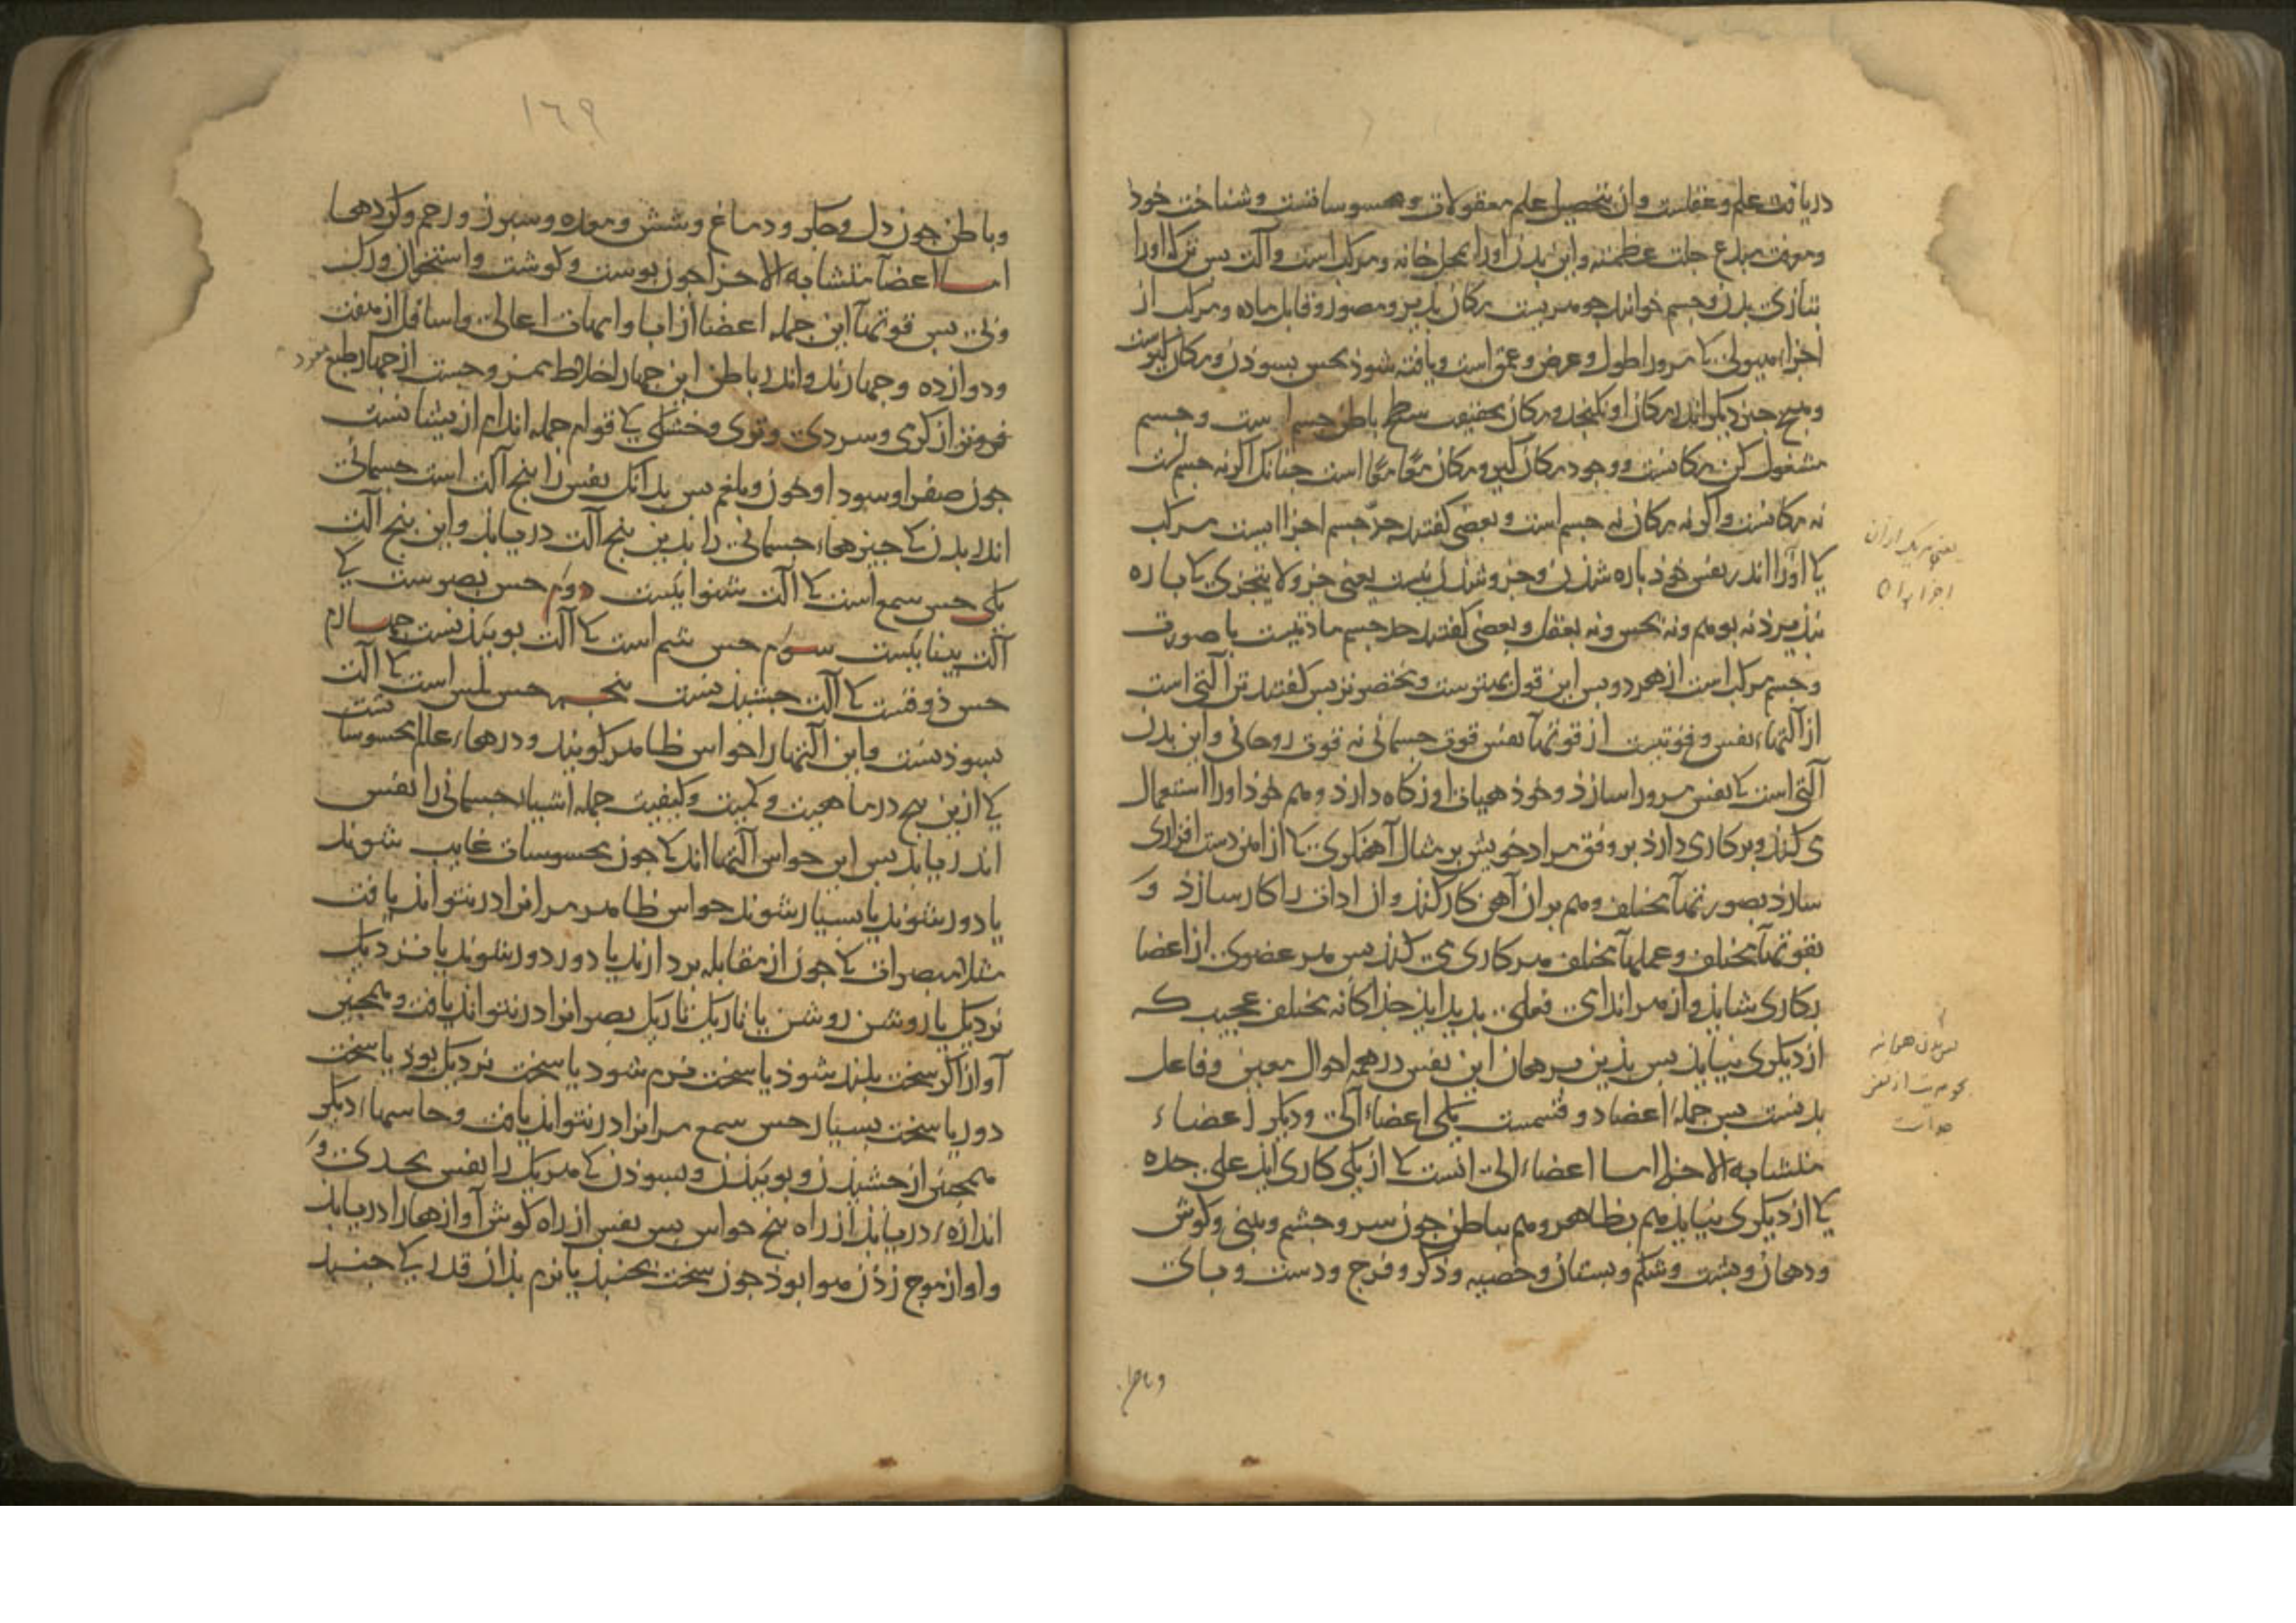 دریافت علم و عقلست و ان تحصیل علم معقولات و محسوساتست و شناخت خود
و معرفت مبدع جلت عظمته و این بدن اورا بمحل خانه و مرکب است و آلت بس ترک اورا
بتازی بدن و جسم خوانند جوهریست مکان بذیر و مصور و قابل ماده و مرکب از
اجزاء هیولی کا مرورا طول و عرض و عمق است و یافته شوذ بحس بسوذن و مکان گیرست
و هیچ جیز دیکر اندر مکان او نکنجد و مکان بحقیقت سطح باطن جسم است و جسم
مشغول کن مکانست و وجود مکان گیر و مکان معا معا است جنانک اکر نه جسم است
نه مکانست و اکر نه مکان نه جسم است و بعضی کفتند حد جسم اجزا ایست مرکب
کا اورا اندر نفس خوذ باره شدن و جزو شدن نیست یعنی جزو لا یتجزی کا باره
نبذیرذ نه بوهم و نه بحس و نه بعقل و بعضی کفتند حد جسم مادتیست با صورت
و جسم مرکب است از هر دو بس این قول بهترست و مختصرتر بس کفتند تن آلتی است
از آلتهاء نفس و قوتیست از قوتهآ نفس قوت جسمانی نه قوت روحانی و این بدن
آلتی است کا نفس مرورا سازذ و خوذ هیات او نکاه دارذ و هم خوذ اورا استعمال
می کنذ و بر کاری دارذ بر وفق مراد خویش بر مثال آهنگری کا از اهن دست افزاری
سازد بصورتهآ مختلف و هم بران آهن کار کنذ و ان ادات را کار سازذ و
بقوتهآ مختلف و عملهآ مختلف هر کاری می کنذ بس هر عضوی از اعضا
بکاری شایذ و از هر اندامی فعلی بدید ایذ جذاکانه مختلف عجیب که
از دیکری نیایذ بس بذین برهان این نفس در همه احوال معین و فاعل
بدنست بس جمله اعضا دو قسمست یکی اعضاء آلی و دیکر اعضاء
متشابه الاجزا اما اعضاء الی انست کا از یکی کاری ایذ علی حده
کا از دیکری نیایذ هم بظاهر و هم بباطن جون سر و جشم و بینی و کوش
و دهان و بشت و شکم و بستان و خصیه و ذکر و فرج و دست و بای
یعنی هر یک از آن
اجزا
و باطن
۱۶۹
و باطن جون دل و جکر و دماغ و شش و معده و سبرز و رحم و کردها
اما اعضآ متشابه الاجزا جون بوست و کوشت و استخوان و رک
و بی بس قوتهآ این جمله اعضا از ابا و امهات اعالی و اسافل از هفت
و دوازده و جهارند و اندر باطن این جهار اخلاط ممزوجست از جهار طبع
فروتر از کرمی و سردی و تری و خشکی کی قوام جمله اندام از یشانست
جون صفرا و سودا و خون و بلغم بس بدانک نفس را بنج آلت است جسمانی
اندر بدن کا جیزهاء جسمانی را بدین بنج آلت دریابذ و این بنج آلت
یکی حس سمع است کا آلت شنواییست دوم حس بصرست کی
آلت بیناییست سوم حس شم است کا آلت بوییذنست جهارم
حس ذوقست کا آلت جشیذنست بنجم حس لمس است کا آلت
بسوذنست و این آلتها را حواس ظاهر کویند و درهاء عالم محسوسا تست
کی ازین بنج در ماهیت و کمیت و کیفیت جمله اشیاء جسمانی را نفس
اندریابد بس این حواس آلتها اند کا جون محسوسات غایب شوند
یا دور شوند یا بسیار شوند حواس ظاهر مر انرا در نتوانذ یافت
مثلا مبصرات کا جون از مقابله بردارند یا دور دور شوند یا نزدیک
نزدیک یا روشن روشن یا تاریک تاریک بصر انرا در نتواند یافت و همجنین
آواز اکر سخت بلند شوذ یا سخت نرم شود یا سخت نزدیک بوذ یا سخت
دور یا سخت بسیار حس سمع مر انرا در نتوانذ یافت و حاسهاء دیکر
همجنین از جشیذن و بوییذن و بسوذن کا هر یک را نفس بحدی و
اندازهٔ دریابذ از راه بنج حواس بس نفس از راه کوش آوازها را دریابد
و اواز موج زذن هوا بوذ جون سخت بجنبذ یا نرم بذان قدر کی جنبد